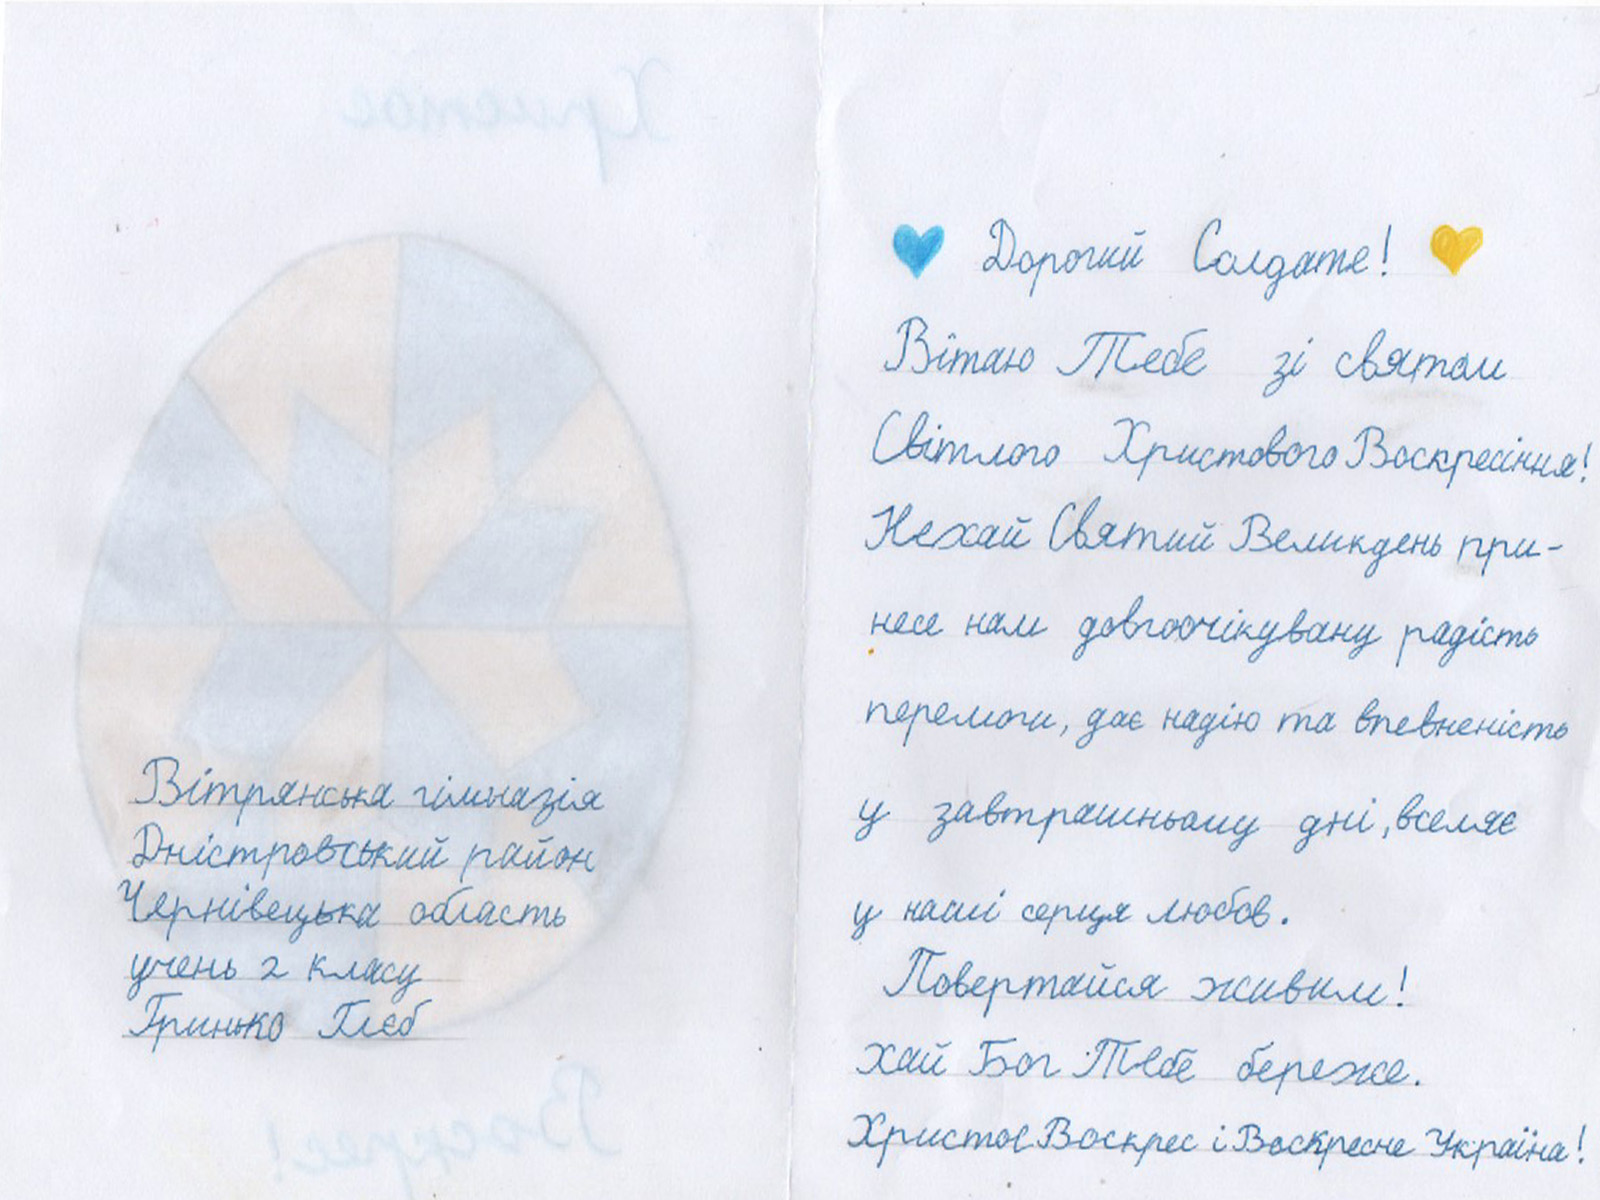 Христос
Вітрянська гімназія
Дністровський район
Чернівецька область
учень 2 класу
Гринько Глєб
Воскрес!
Дорогий Солдате!
Вітаю Тебе зі святом
Світлого Христового Воскресіння!
Нехай Святий Великдень при-
несе нам довгоочікувану радість
перемоги, дає надію та впевненість
у завтрашньому дні, вселяє
у наші серця любов.
Повертайся живим!
хай Бог Тебе береже.
Христос Воскрес і Воскресне Україна!